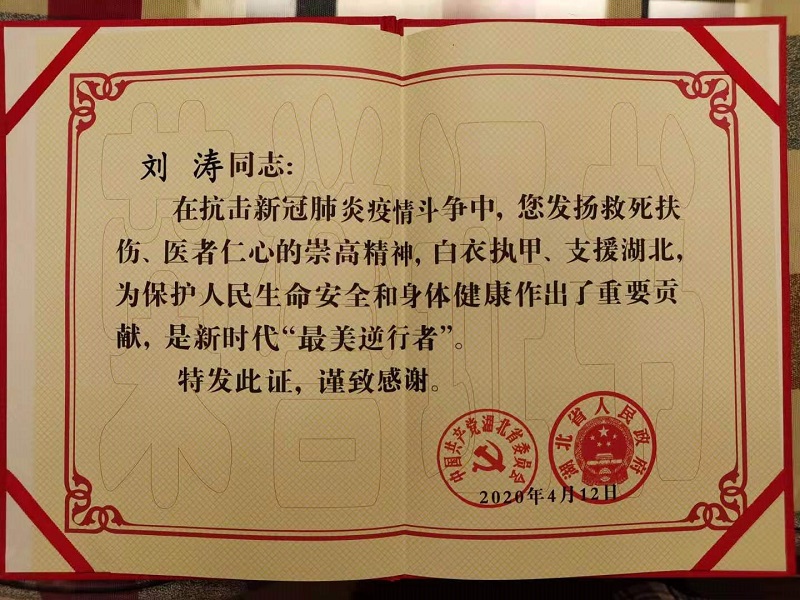 刘 涛同志:
在抗击新冠肺炎疫情斗争中, 您发扬救死扶
伤、医者仁心的崇高精神, 白衣执甲、支援湖北,
为保护人民生命安全和身体健康作出了重要贡
献, 是新时代“最美逆行者”。
特发此证, 谨致感谢。
中国共产党湖北省委员会
湖北省人民政府
2020年4月12日
荣誉证书